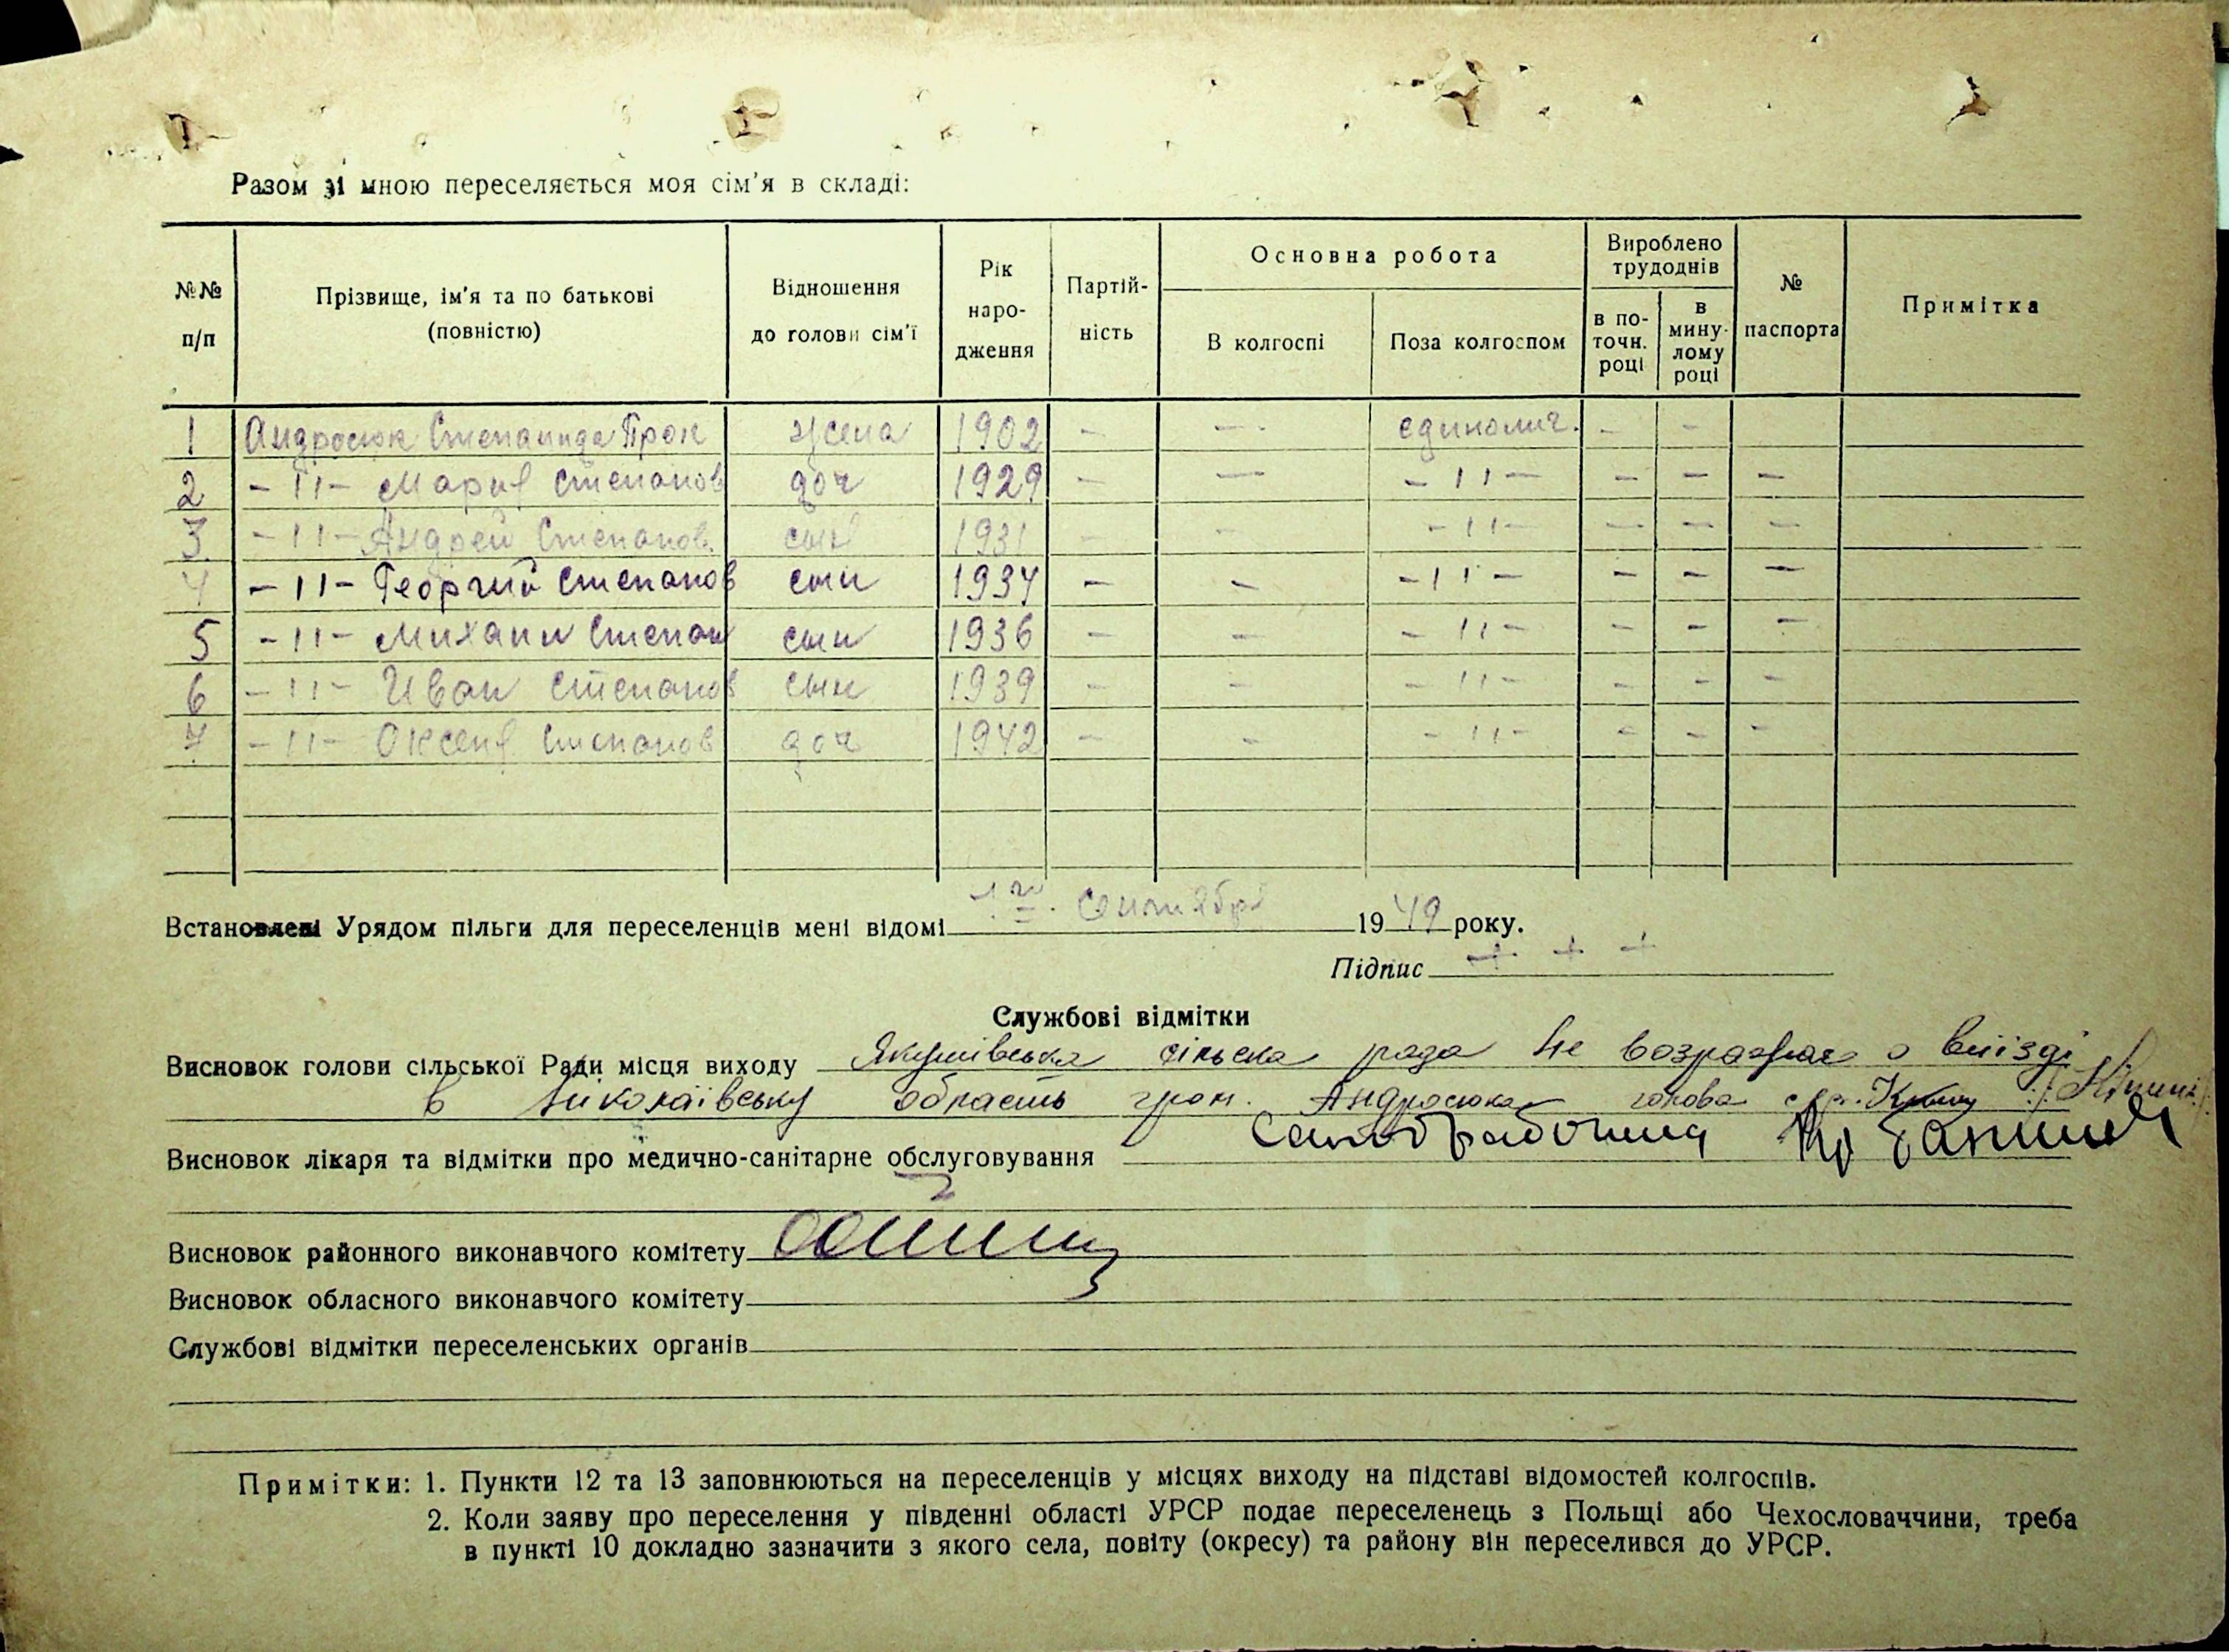 Разом зі мною переселяється моя сім'я в складі:
№№ п/п Прізвище, ім'я та по батькові (повністю) Відношення до голови сім'ї Рік народження Партійність Основна робота В колгоспі Поза колгоспом Вироблено трудоднів в поточн. році в минулому році № паспорта Примітка
1 Андросюк Степанида Прок жена 1902 — — единолич. — —
2 -11- Мария Степанов доч 1929 — — -11- — — —
3. -11- Андрей Степанов. сын 1931 — — -11- — — —
4 -11- Георгий Степанов сын 1934 — — -11- — — —
5 -11- Михаил Степан сын 1936 — — -11- — — —
6 -11- Иван Степанов сын 1939 — — -11- — — —
7 -11- Оксения Степанов доч 1942 — — -11- — — —
Встановлені Урядом пільги для переселенців мені відомі Сентября 1949 року.
Підпис + + +
Службові відмітки
Висновок голови сільської Ради місця виходу Якушівська сільська рада не возражає о виїзді
в Ніколаївську область гром. Андросюка голова с/р.
Висновок лікаря та відмітки про медично-санітарне обслуговування
Висновок районного виконавчого комітету
Висновок обласного виконавчого комітету
Службові відмітки переселенських органів
Примітки: 1. Пункти 12 та 13 заповнюються на переселенців у місцях виходу на підставі відомостей колгоспів.
2. Коли заяву про переселення у південні області УРСР подає переселенець з Польщі або Чехословаччини, треба
в пункті 10 докладно зазначити з якого села, повіту (окресу) та району він переселився до УРСР.